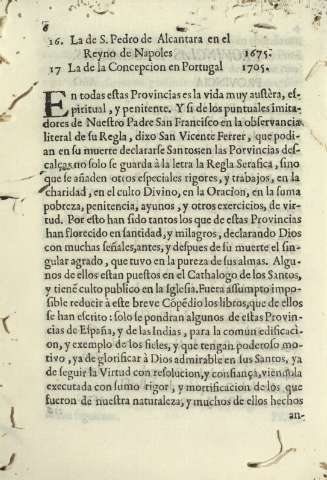 6
16. La de S. Pedro de Alcantara en el
Reyno de Napoles 1675.
17 La de la Concepcion en Portugal 1705.
En todas estas Provincias es la vida muy austèra, es-
piritual, y penitente. Y si de los puntuales imita-
dores de Nuestro Padre San Francisco en la observancia
literal de su Regla, dixo San Vicente Ferrer, que podi-
an en su muerte declararse Santos en las Porvincias des-
calças no solo se guarda à la letra la Regla Serafica, sino
que se añaden otros especiales rigores, y trabajos, en la
charidad, en el culto Divino, en la Oracion, en la suma
pobreza, penitencia, ayunos, y otros exercicios, de vir-
tud. Por esto han sido tantos los que de estas Provincias
han florecido en santidad, y milagros, declarando Dios
con muchas señales, antes, y despues de su muerte el sin-
gular agrado, que tuvo en la pureza de sus almas. Algu-
nos de ellos estan puestos en el Cathalogo de los Santos,
y tienẽ culto publico en la Iglesia. Fuera assumpto impo-
sible reducir à este breve Cõpẽdio los libros, que de ellos
se han escrito: solo se pondran algunos de estas Provin-
cias de España, y de las Indias, para la comun edificaci-
on, y exemplo de los fieles, y que tengan poderoso mo-
tivo, ya de glorificar à Dios admirable en sus Santos, ya
de seguir la Virtud con resolucion, y confiança, viendola
executada con sumo rigor, y mortificacion de los que
fueron de nuestra naturaleza, y muchos de ellos hechos
an-